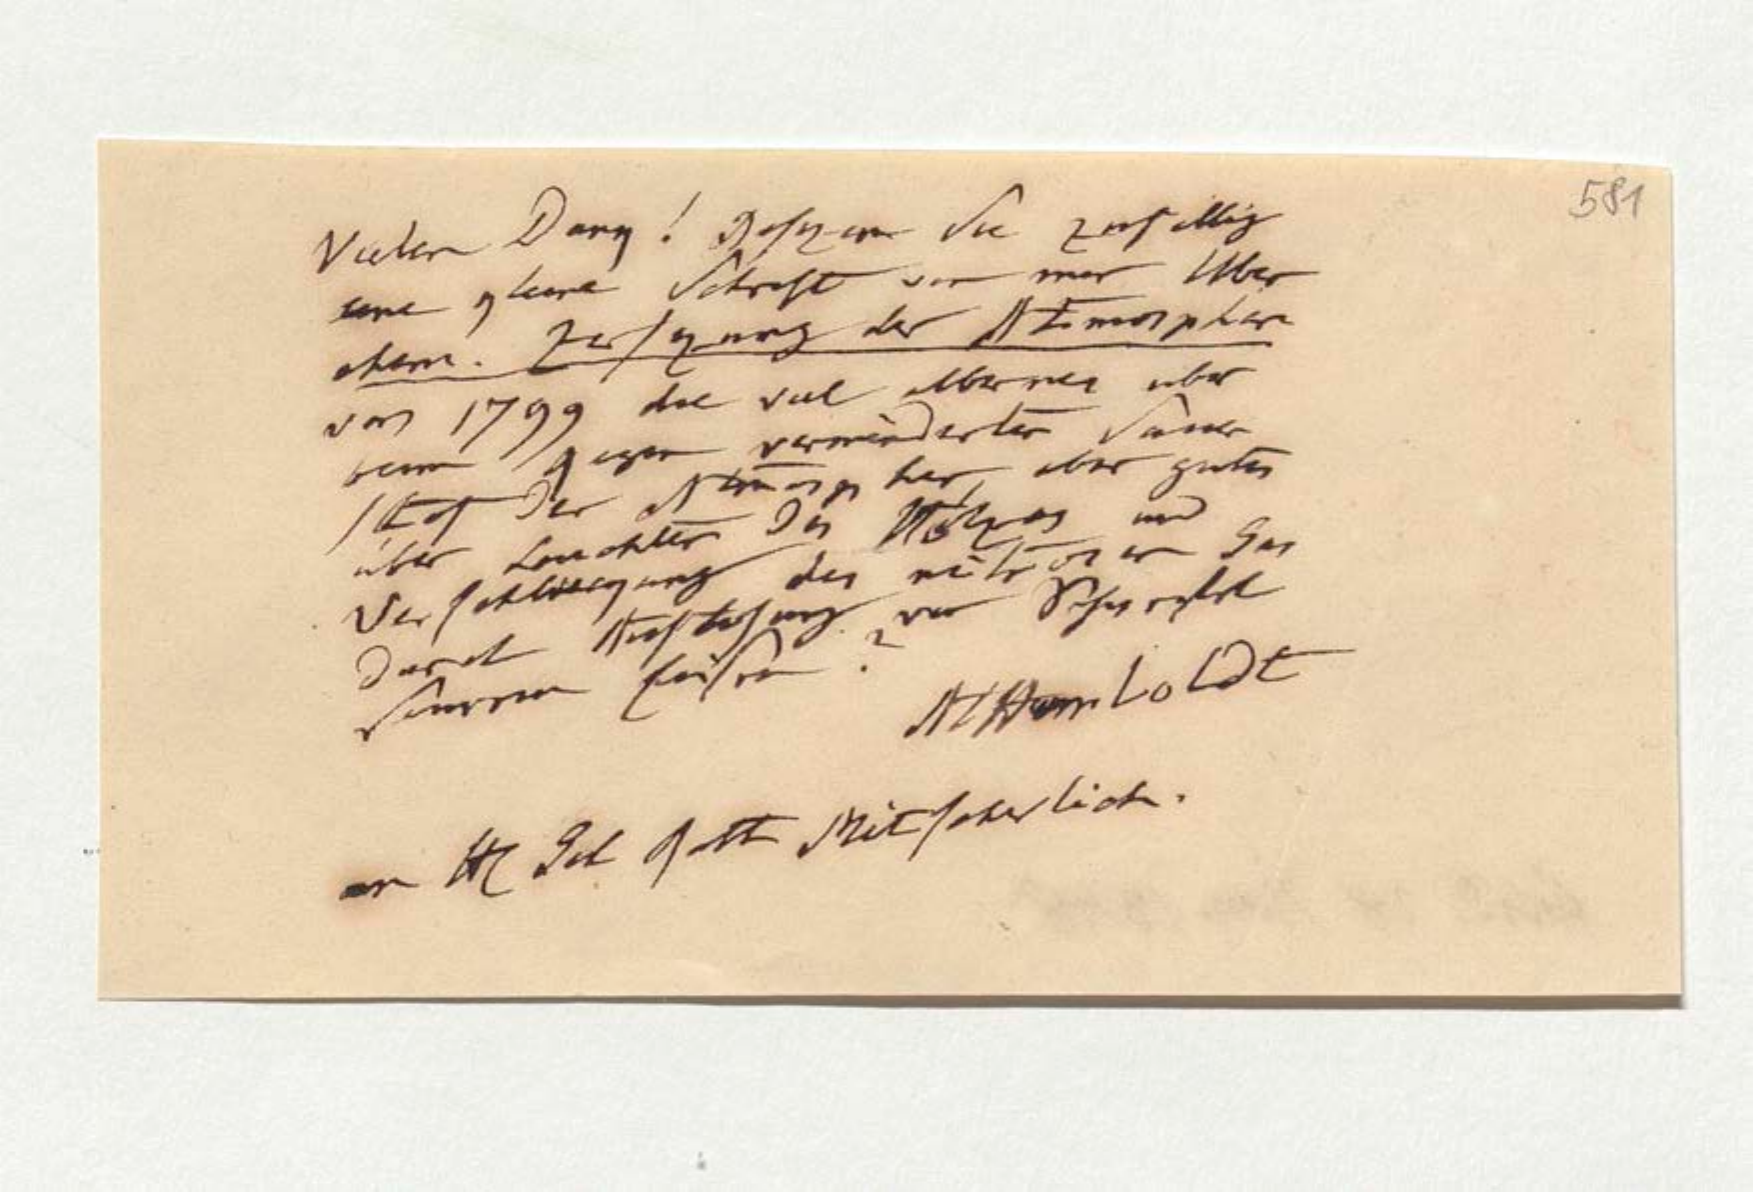 581
Vielen Dank! Besizen Sie zufällig
eine kleine Schrift von mir Uber
chem. Zersezung der Atmosphäre
von 1799 die viel albernes über
beim Regen verminderten Sauer
stof der Atmosphär, aber gutes
über Leuchten des Holzes und
Verschluckung des nitrosen Gas
durch Auflösung von Schwefel
saurem Eisen?
AlHumboldt
an H Geh Rath Mitscherlich.